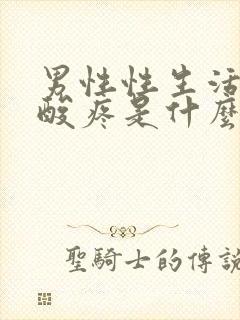 男性性生活
酸疼是什麼
聖騎士的傳說